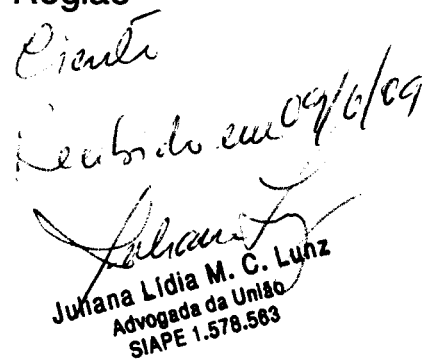 Região
Ciente
Recebido em 09/6/09
Juliana Lídia M. C. Lunz
Advogada da União
SIAPE 1.578.563